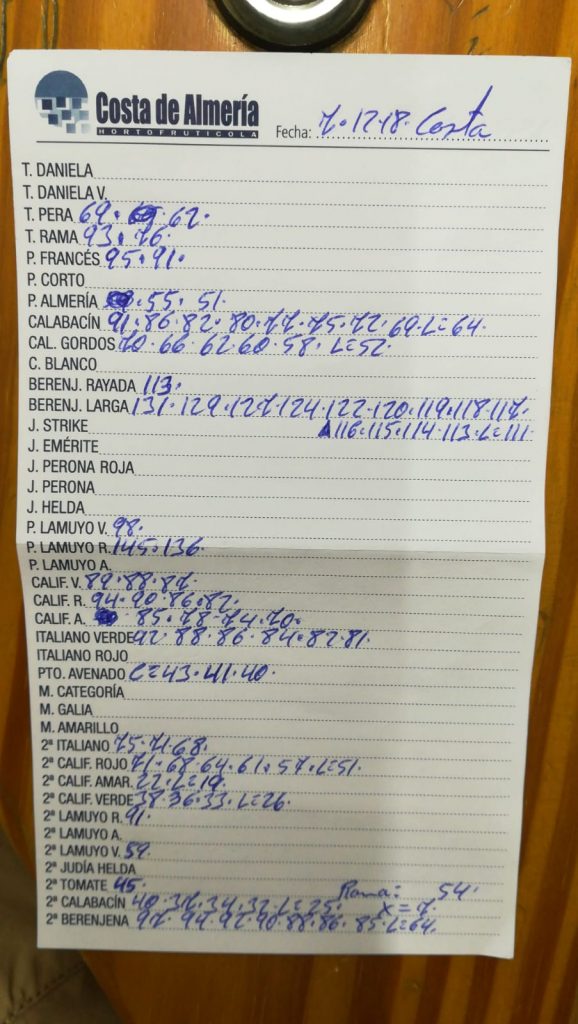 Costa de Almería
HORTOFRUTICOLA
Fecha: 7.12.18. Costa
T. DANIELA
T. DANIELA V.
T. PERA 69. 62.
T. RAMA 93. 76.
P. FRANCÉS 95. 91.
P. CORTO
P. ALMERÍA 55. 51.
CALABACÍN 91. 86. 82. 80. 77. 75. 72. 69. L=64.
CAL. GORDOS 70. 66. 62 60. 58. L=52
C. BLANCO
BERENJ. RAYADA 113.
BERENJ. LARGA 131. 129. 127. 124. 122. 120. 119. 118. 117.
J. STRIKE 116. 115. 114. 113. L=111
J. EMÉRITE
J. PERONA ROJA
J. PERONA
J. HELDA
P. LAMUYO V. 98.
P. LAMUYO R. 145. 136.
P. LAMUYO A.
CALIF. V. 89. 88. 87.
CALIF. R. 94. 90. 86. 82.
CALIF. A. 85. 78. 74. 70.
ITALIANO VERDE 92. 88. 86. 84. 82. 81.
ITALIANO ROJO
PTO. AVENADO L=43. 41. 40.
M. CATEGORÍA
M. GALIA
M. AMARILLO
2ª ITALIANO 75. 71. 68.
2ª CALIF. ROJO 71. 68. 64. 61. 57. L=51.
2ª CALIF. AMAR. 22. L=19.
2ª CALIF. VERDE 38. 36. 33. L=26.
2ª LAMUYO R. 91.
2ª LAMUYO A.
2ª LAMUYO V. 59.
2ª JUDÍA HELDA
2ª TOMATE 45. Rama: 54.
2ª CALABACÍN 40. 37. 34. 32. L=25. X=7.
2ª BERENJENA 97. 94. 92. 90. 88. 86. 85. L=64.